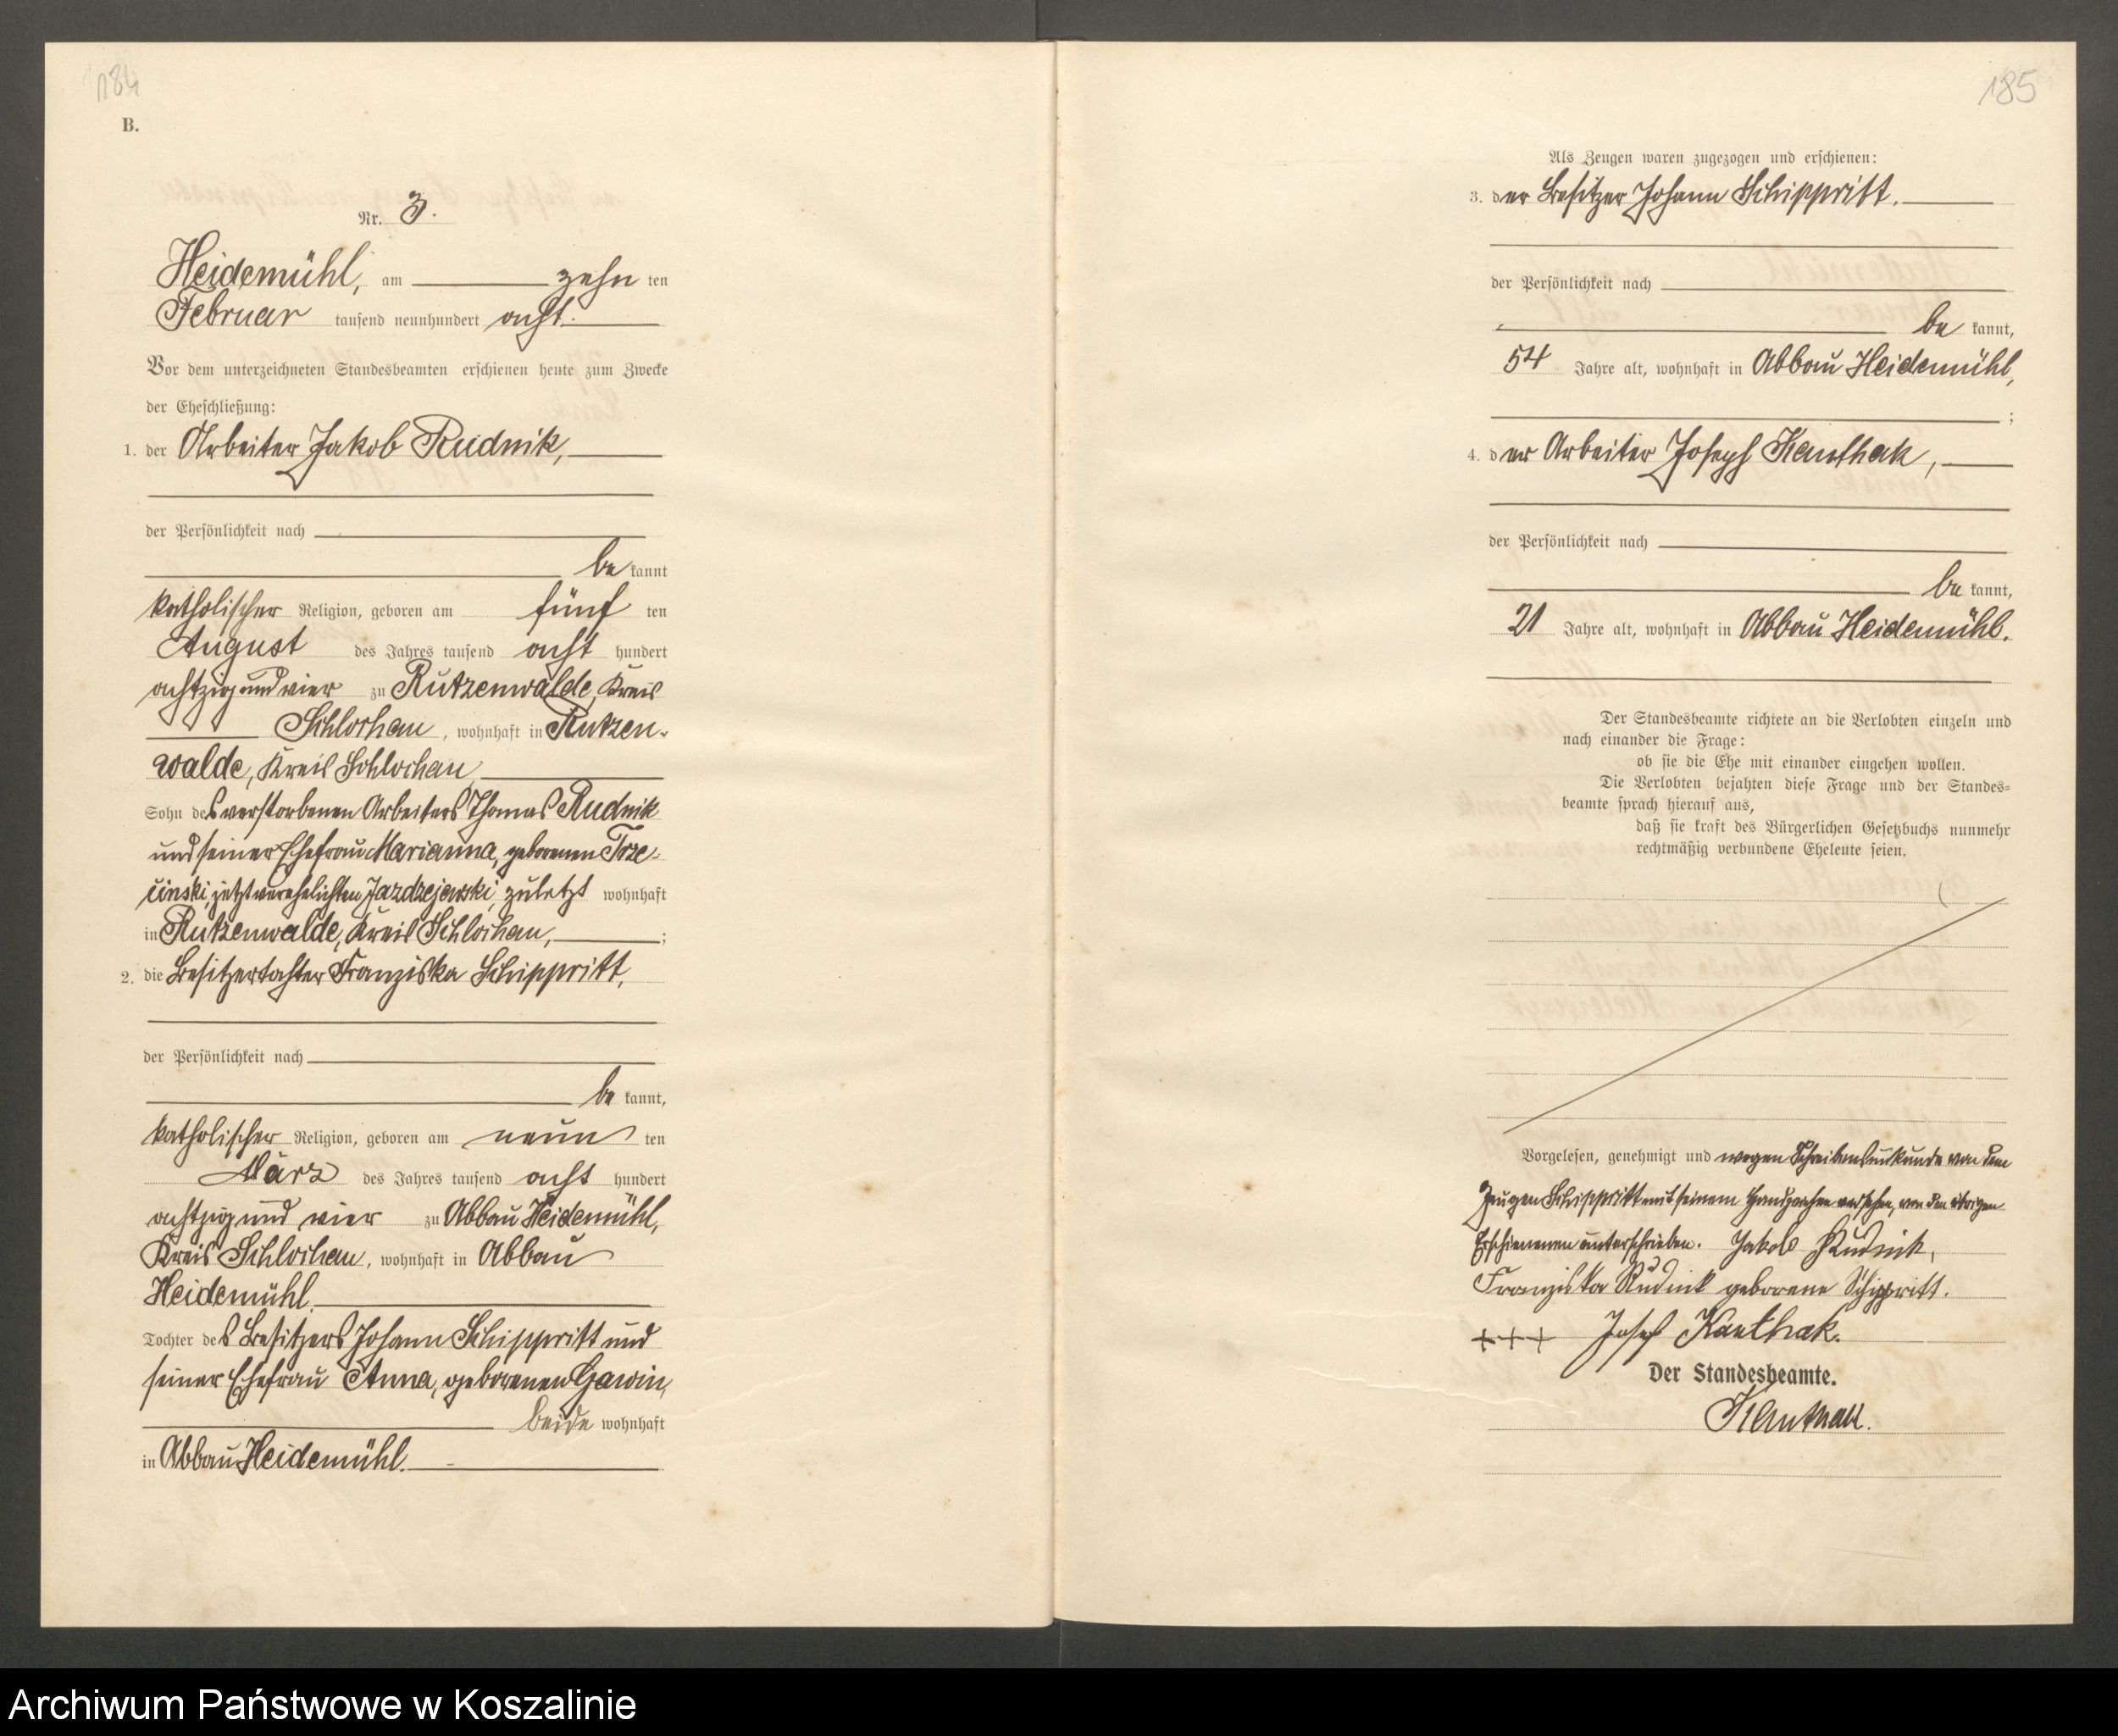 184
B.
Nr. 3.
Heidemühl, am zehn ten
Februar tausend neunhundert acht.
Vor dem unterzeichneten Standesbeamten erschienen heute zum Zwecke
der Eheschließung:
1. der Arbeiter Jakob Rudnik,
der Persönlichkeit nach
be kannt
katholischer Religion, geboren am fünf ten
August des Jahres tausend acht hundert
achtzig und vier zu Rutzenwalde, Kreis
Schlochau, wohnhaft in Rutzen-
walde, Kreis Schlochau,
Sohn des verstorbenen Arbeiters Thomas Rudnik
und seiner Ehefrau Marianna, geborenen Trze-
cinski, jetzt verehelichten Jazdzejewski, zuletzt wohnhaft
in Rutzenwalde, Kreis Schlochau, ;
2. die Besitzertochter Franziska Schippritt,
der Persönlichkeit nach
be kannt,
katholischer Religion, geboren am neun ten
März des Jahres tausend acht hundert
achtzig und vier zu Abbau Heidemühl,
Kreis Schlochau, wohnhaft in Abbau
Heidemühl.
Tochter des Besitzers Johann Schippritt und
seiner Ehefrau Anna, geborenen Gawin,
beide wohnhaft
in Abbau Heidemühl.
185
Als Zeugen waren zugezogen und erschienen:
3. der Besitzer Johann Schippritt.
der Persönlichkeit nach
be kannt,
54 Jahre alt, wohnhaft in Abbau Heidemühl,
;
4. der Arbeiter Joseph Kanthak,
der Persönlichkeit nach
be kannt,
21 Jahre alt, wohnhaft in Abbau Heidemühl.
Der Standesbeamte richtete an die Verlobten einzeln und
nach einander die Frage:
ob sie die Ehe mit einander eingehen wollen.
Die Verlobten bejahten diese Frage und der Standes-
beamte sprach hierauf aus,
daß sie kraft des Bürgerlichen Gesetzbuchs nunmehr
rechtmäßig verbundene Eheleute seien.
Vorgelesen, genehmigt und wegen Schreibensunkunde von dem
Zeugen Schippritt mit seinem Handzeichen versehen, von den übrigen
Erschienenen unterschrieben. Jakob Rudnik,
Franziska Rudnik geborene Schippritt.
+++ Josef Kanthak.
Der Standesbeamte.
Kanthak.
Archiwum Państwowe w Koszalinie